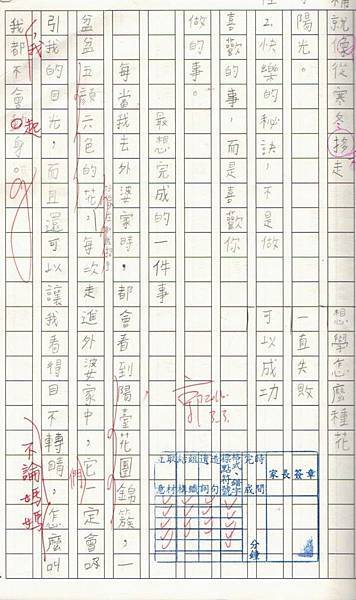 就像從寒冬走
想學怎麼種花
陽光。
一直失敗
2.快樂的秘訣,不是做
可以成功
喜歡的事,而是喜歡你
做的事。
最想完成的一件事
每當我去外婆家時,都會看到陽臺花團錦簇,一
盆盆五顏六色的花,每次走進外婆家中,它一定會吸
們
引我的目光,而且還可以讓我看得目不轉睛,怎麼叫
不論媽媽
我都不會身。
我
起
家長簽章
時間
分鐘
完成
格式、錯字
標點符號
組織
結構
取材
立意